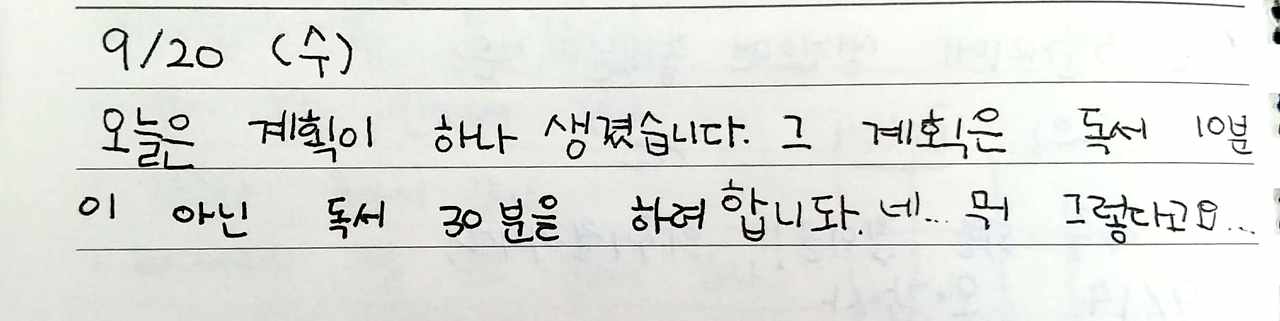 9/20 (수)
오늘은 계획이 하나 생겼습니다. 그 계획은 독서 10분
이 아닌 독서 30분을 하려 합니돠. 네... 뭐 그렇다고요...